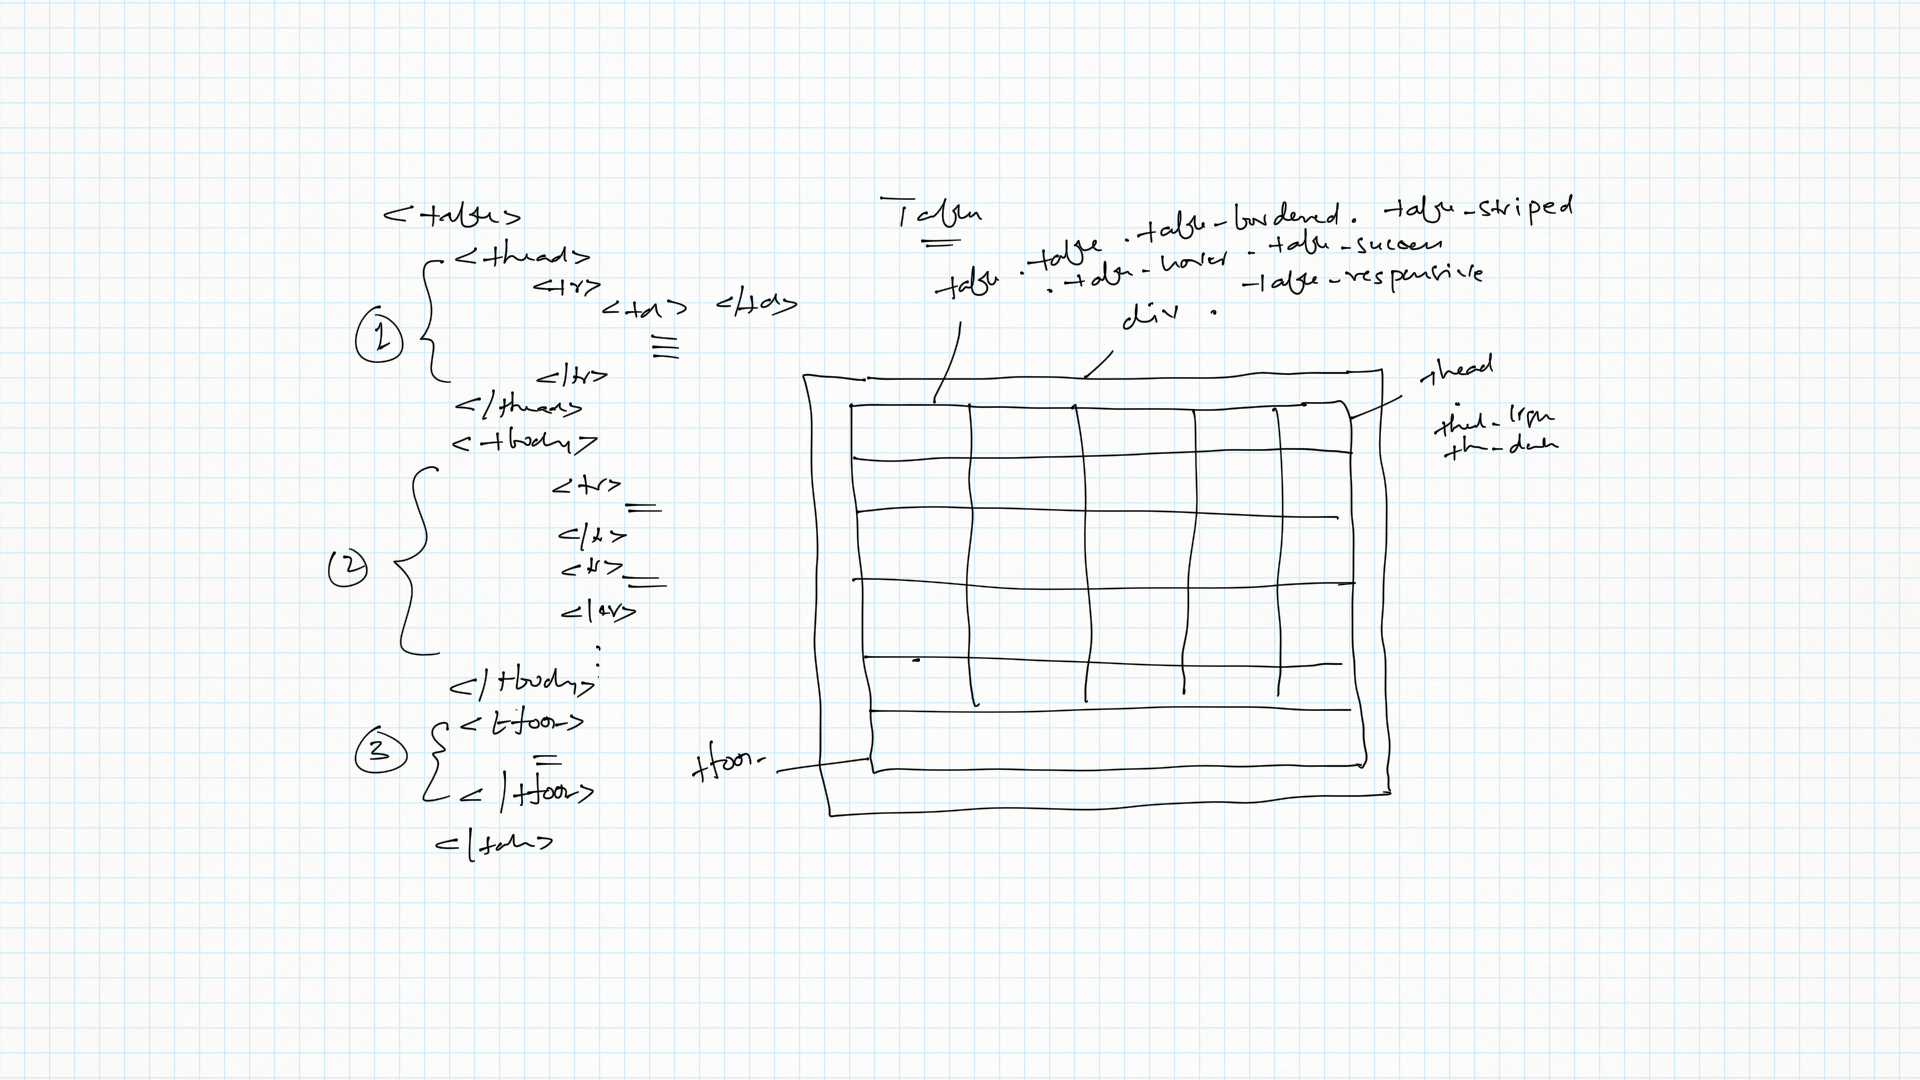 <table>
<thead>
<tr>
<td> </td>
1
</tr>
</thead>
<tbody>
<tr>
</tr>
<tr>
2
</tr>
</tbody>
<tfoot>
3
</tfoot>
</table>
Tables
table .table .table-bordered. table-striped
.table-hover - table-success
table-responsive
div .
thead
thead-light
th-dark
tfoot